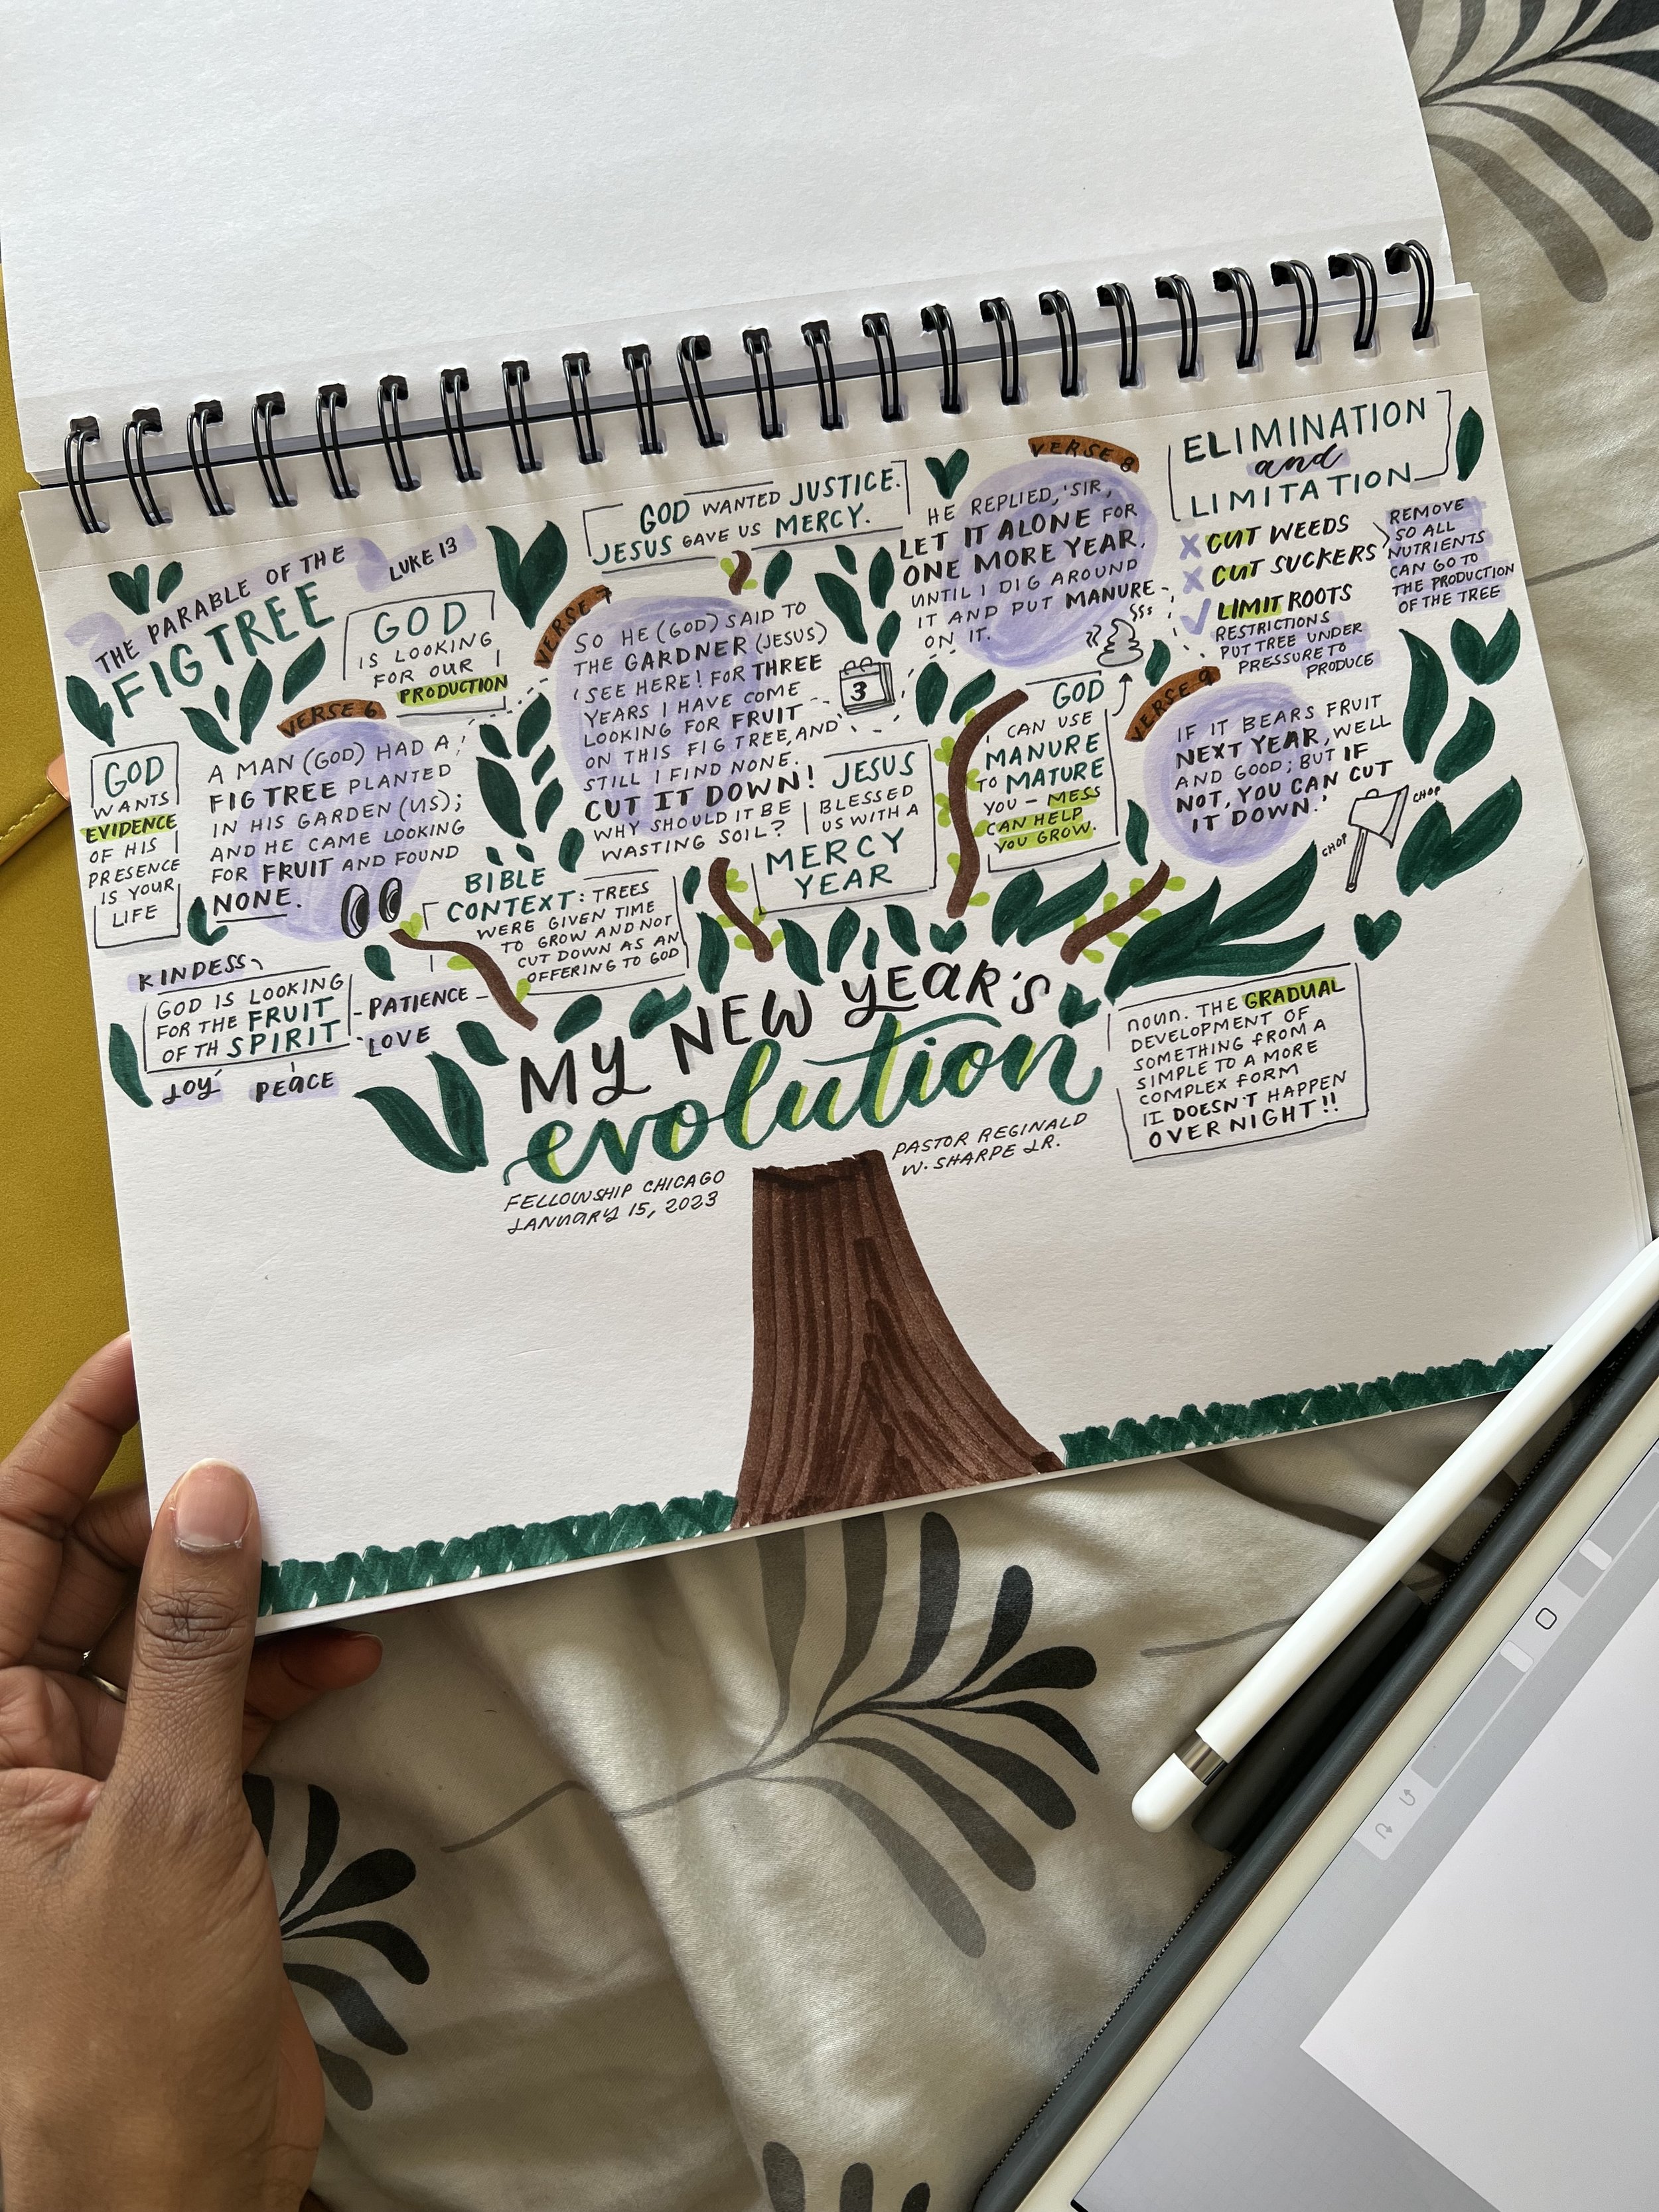 THE PARABLE OF THE
FIG TREE
LUKE 13
GOD
IS LOOKING
FOR OUR
PRODUCTION
GOD
WANTS
EVIDENCE
OF HIS
PRESENCE
IS YOUR
LIFE
VERSE 6
A MAN (GOD) HAD A
FIG TREE PLANTED
IN HIS GARDEN (US);
AND HE CAME LOOKING
FOR FRUIT AND FOUND
NONE.
KINDESS
GOD IS LOOKING
FOR THE FRUIT
OF TH SPIRIT
PATIENCE
LOVE
JOY
PEACE
GOD WANTED JUSTICE.
JESUS GAVE US MERCY.
VERSE 7
SO HE (GOD) SAID TO
THE GARDNER (JESUS)
'SEE HERE! FOR THREE
YEARS I HAVE COME
LOOKING FOR FRUIT
ON THIS FIG TREE, AND
STILL I FIND NONE.
CUT IT DOWN!
WHY SHOULD IT BE
WASTING SOIL?
3
BIBLE
CONTEXT: TREES
WERE GIVEN TIME
TO GROW AND NOT
CUT DOWN AS AN
OFFERING TO GOD
JESUS
BLESSED
US WITH A
MERCY
YEAR
VERSE 8
HE REPLIED, 'SIR,
LET IT ALONE FOR
ONE MORE YEAR,
UNTIL I DIG AROUND
IT AND PUT MANURE
ON IT.
GOD
CAN USE
MANURE
TO MATURE
YOU - MESS
CAN HELP
YOU GROW.
ELIMINATION
and
LIMITATION
X CUT WEEDS
X CUT SUCKERS
REMOVE
SO ALL
NUTRIENTS
CAN GO TO
THE PRODUCTION
OF THE TREE
✓ LIMIT ROOTS
RESTRICTIONS
PUT TREE UNDER
PRESSURE TO
PRODUCE
VERSE 9
IF IT BEARS FRUIT
NEXT YEAR, WELL
AND GOOD; BUT IF
NOT, YOU CAN CUT
IT DOWN.'
CHOP
CHOP
MY NEW YEAR'S
evolution
noun. THE GRADUAL
DEVELOPMENT OF
SOMETHING FROM A
SIMPLE TO A MORE
COMPLEX FORM
IT DOESN'T HAPPEN
OVERNIGHT!!
FELLOWSHIP CHICAGO
JANUARY 15, 2023
PASTOR REGINALD
W. SHARPE JR.